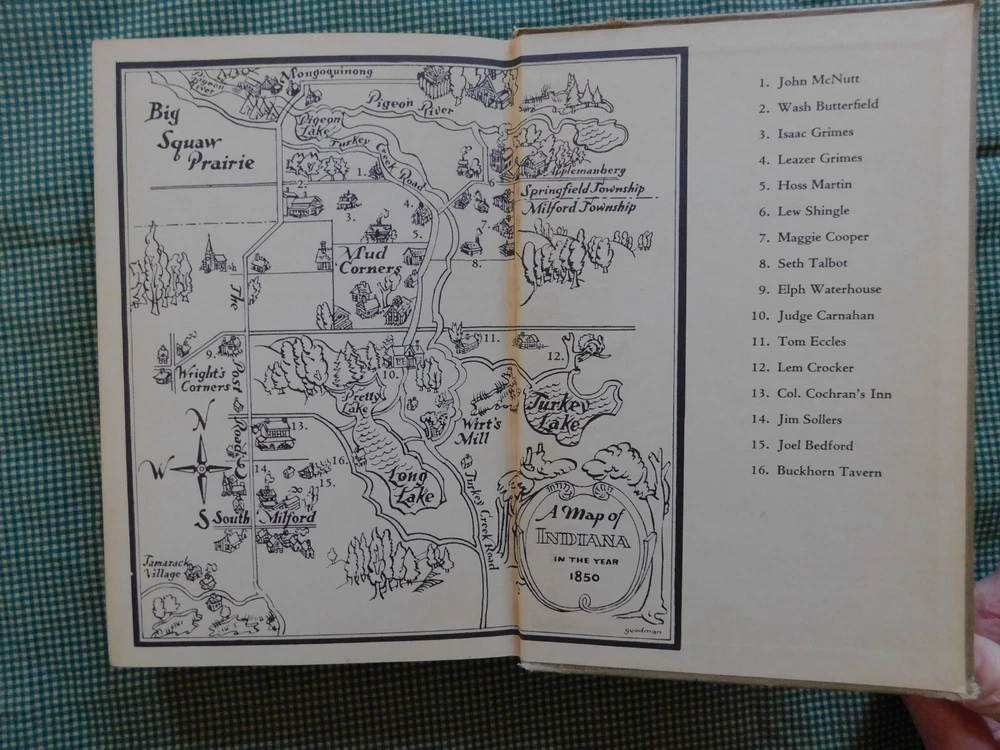 Mongoquinong
Pigeon
River
Big
Squaw
Prairie
Pigeon
River
Pigeon
Lake
Turkey Creek Road
1.
2.
3.
4.
5.
6
7.
8.
Applemanberg
Springfield Township
Milford Township
Mud
Corners
The Post Road
9.
Wright's
Corners
10.
11.
12.
Pretty
Lake
Turkey
Lake
Wirt's
Mill
N
W
S
13.
14.
15.
16.
Long
Lake
South Milford
Turkey Creek Road
Tamarack
Village
A Map of
INDIANA
IN THE YEAR
1850
goodman
1. John McNutt
2. Wash Butterfield
3. Isaac Grimes
4. Leazer Grimes
5. Hoss Martin
6. Lew Shingle
7. Maggie Cooper
8. Seth Talbot
9. Elph Waterhouse
10. Judge Carnahan
11. Tom Eccles
12. Lem Crocker
13. Col. Cochran's Inn
14. Jim Sollers
15. Joel Bedford
16. Buckhorn Tavern